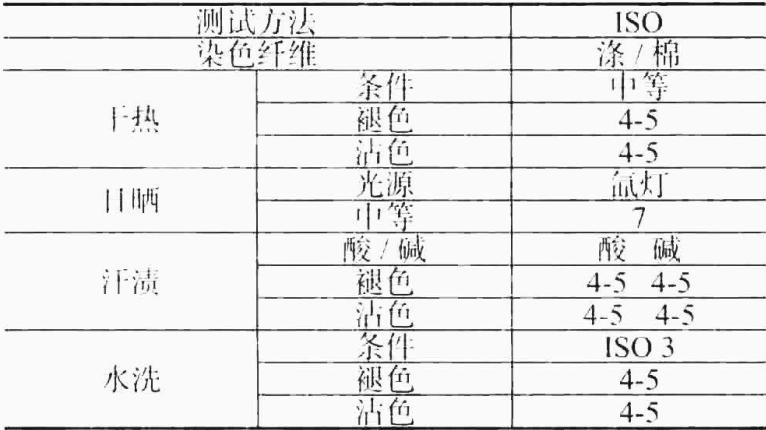 测试方法 ISO
染色纤维 涤 / 棉
干热 条件 中等
褪色 4-5
沾色 4-5
日晒 光源 氙灯
中等 7
汗渍 酸 / 碱 酸 碱
褪色 4-5 4-5
沾色 4-5 4-5
水洗 条件 ISO 3
褪色 4-5
沾色 4-5